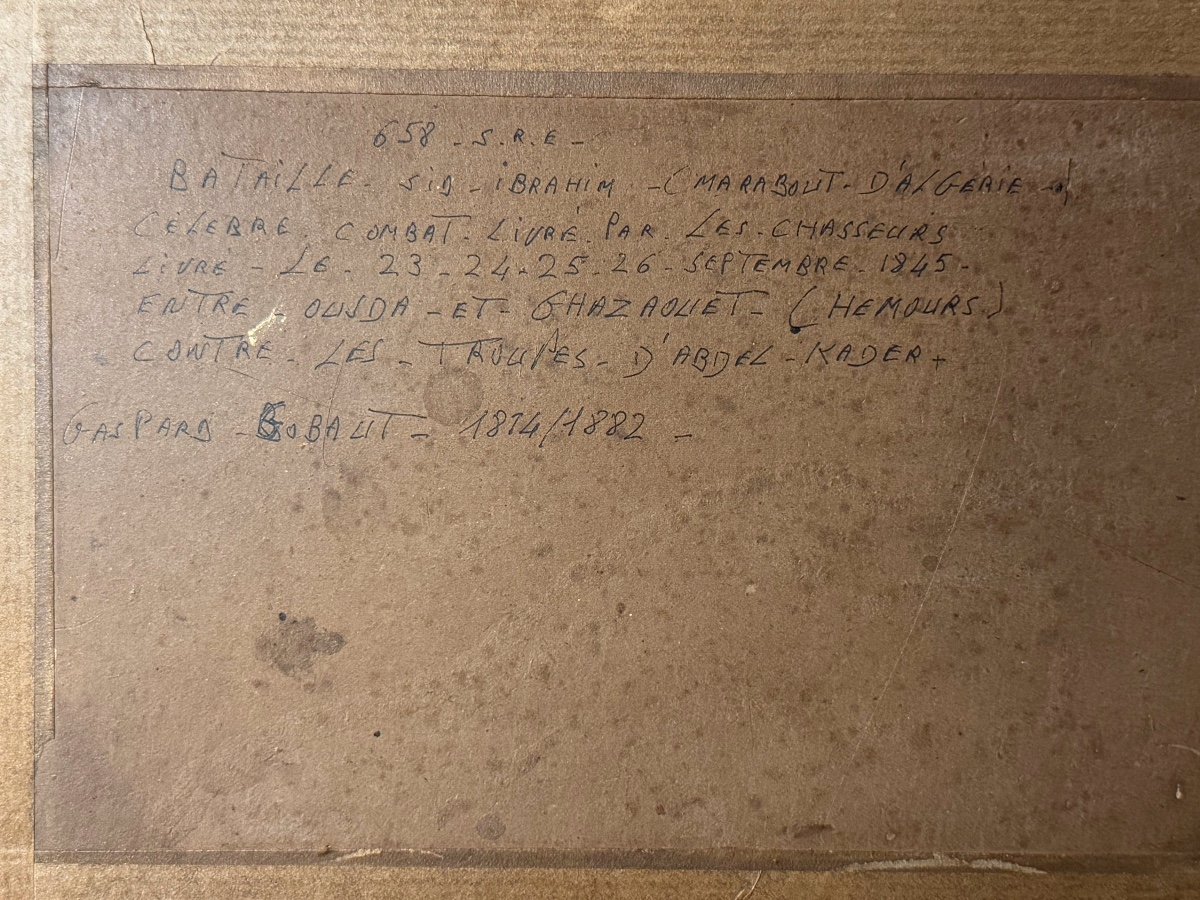 658 - S.R.E -
BATAILLE - SID - IBRAHIM - (MARABOUT - D'ALGÉRIE -)
CÉLEBRE - COMBAT - LIVRÉ - PAR - LES - CHASSEURS
LIVRÉ - LE - 23 - 24 - 25 - 26 - SEPTEMBRE - 1845 -
ENTRE - OUSDA - ET - GHAZAOUET - (HEMOURS)
CONTRE - LES - TROUPES - D'ABDEL - KADER +
GASPARD - GOBAUT - 1814/1882 -